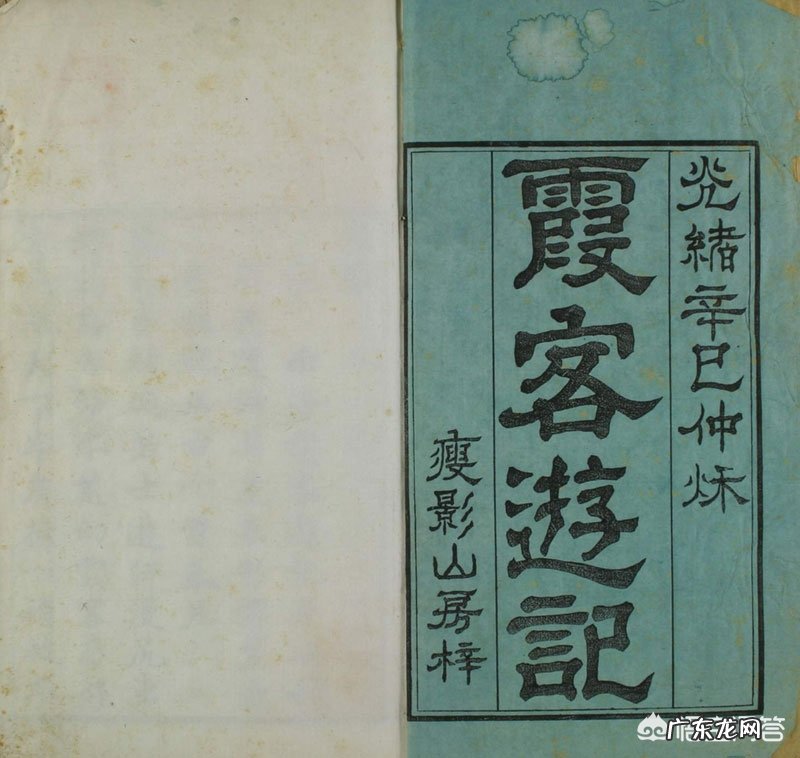 光緒辛巳仲烁
霞客遊記
瘦影山房梓
广东龙网